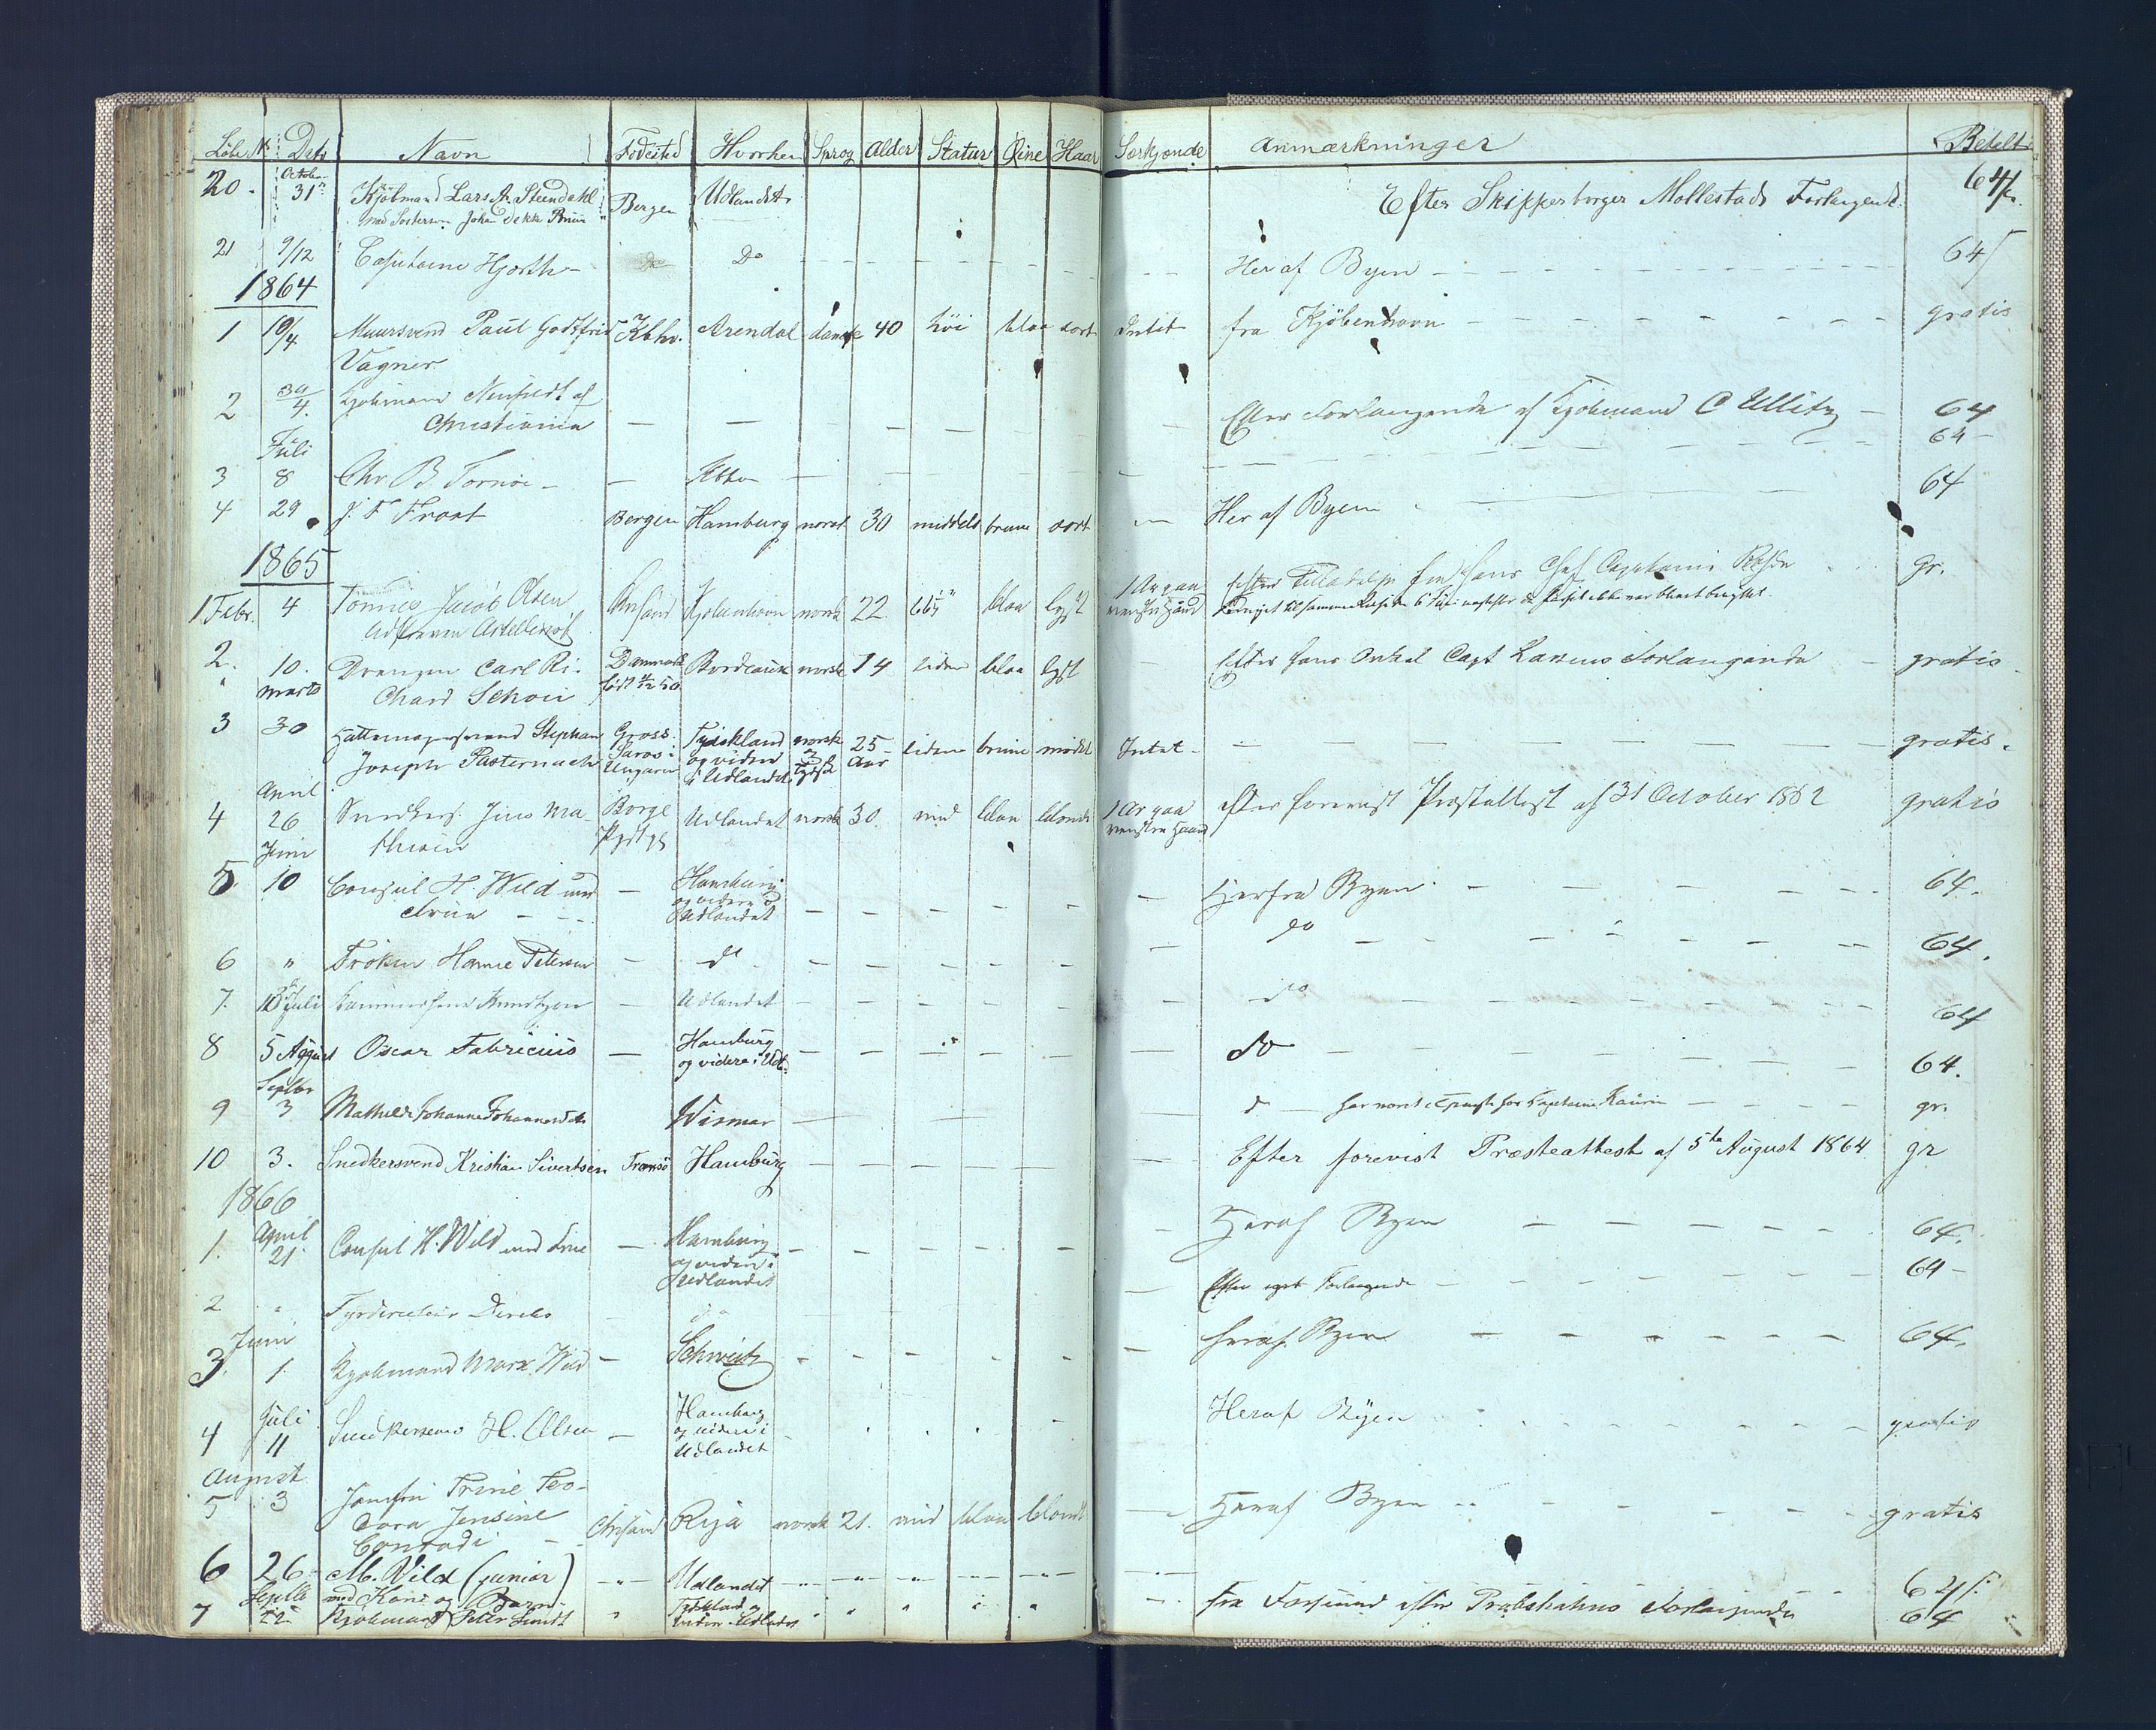 Löbe No Dato Navn Födested Hvorhen Sprog Alder Statur Øine Haar Særkjende Anmærkninger Betalt
20. October 31te Kjöbmand Lars A. Steendahl Bergen Udlandet Efter Skipperborger Mollestads Forlangende 64
med Søsterson Johan Dekke
21 9/12 Capitaine Hjorth - Do Do - - - - - - Her af Byen - - - 64
1864
1 19/4 Muursvend Paul Godtfried Kbhv. Arendal dansk 40 höi blaa sort Intet fra Kjöbenhavn - - - gratis
Vagner
2 30/4 Kjöbmand af Efter Forlangende af Kjöbmand C Ullitz - 64
Christiania - - - - - -
Juli
3 8 Chr B Tornöe - - Kbhv - - - 64 -
4 29 J. F. Frost Bergen Hamburg norsk 30 middels brune sort - Her af Byen 64
1865
1 Febr. 4 Tönnes Jacob Olsen Chrsand Kjöbenhavn norsk 22 blaa lyst 1 Ar paa venstre Haand Efter Tilladelse fra hans Chef Capitaine gr.
2. 10. Drengen Carl Ri- Danmark Bordeaux norsk 14 liden blaa lyst - Efter hans Onkel Capt Larsens Forlangende - gratis
" Marts chard Schou født 4/2 50
3 30 Hattemagersvend Stephan Gross Tydskland norsk 25 liden brune mörkt Intet - - - gratis.
Joseph Pasternack Saros i og videre og Aar
Ungarn i Udlandet tydsk
April
4 26 Snedkers. Jens Ma- Borge Udlandet norsk 30 mid blaa blond 1 Ar paa efter forevist Præsteattest af 31 October 1862 gratis
Juni thisen venstre Haand
5 10 Consul H. Wild med - Hamburg - - - - - - Herfra Byen - - - 64.
Frue - - og videre i
Udlandet
6 " Frøken Hanne Petersen - do - - - - - - do - - - 64.
7. 18 Juli - Udlandet - - - - - - do - - - 64
8 5 August Oscar Fabricius - Hamburg - - - - - - do - - - 64.
og videre i Udl.
Septbr
9 3 Mathilde Johanne Johannesdtr Wismar - - - d - har været i Tjeneste hos Capitaine - - - gr.
10 3. Snedkersvend Kristian Sivertsen Tromsö Hamburg - - - - - - Efter forevist Præsteattest af 5te August 1864 gr
1866
1. April 21. Consul H. Wild med Frue - Hamburg - - - - - - Heraf Byen - - - 64.
og videre i
Udlandet
2 " Fyrdirecteur Diriks - do - Efter eget Forlangende - - - 64 -
Juni
3. 1. Kjøbmand Marx Wild - Schweitz - - - - - - heraf Byen - - - 64.
Juli
4 11 Snedkersvend H. Olsen - Hamburg - Heraf Byen - - - gratis
og videre i
Udlandet
August
5 3 Jomfru Trine Teo-
dora Jensine Chrsand Riga norsk 21. mid blaa blondt - Heraf Byen - - - gratis
Conradi
6 26 M. Wild (junior) - " - Udlandet - - - - - - 64
Septbr med Kone og Barn
7 22 Kjøbmand Peter Lundt " Tydskland og " " " " " - fra Farsund efter Forlangende 64
videre Udlandet